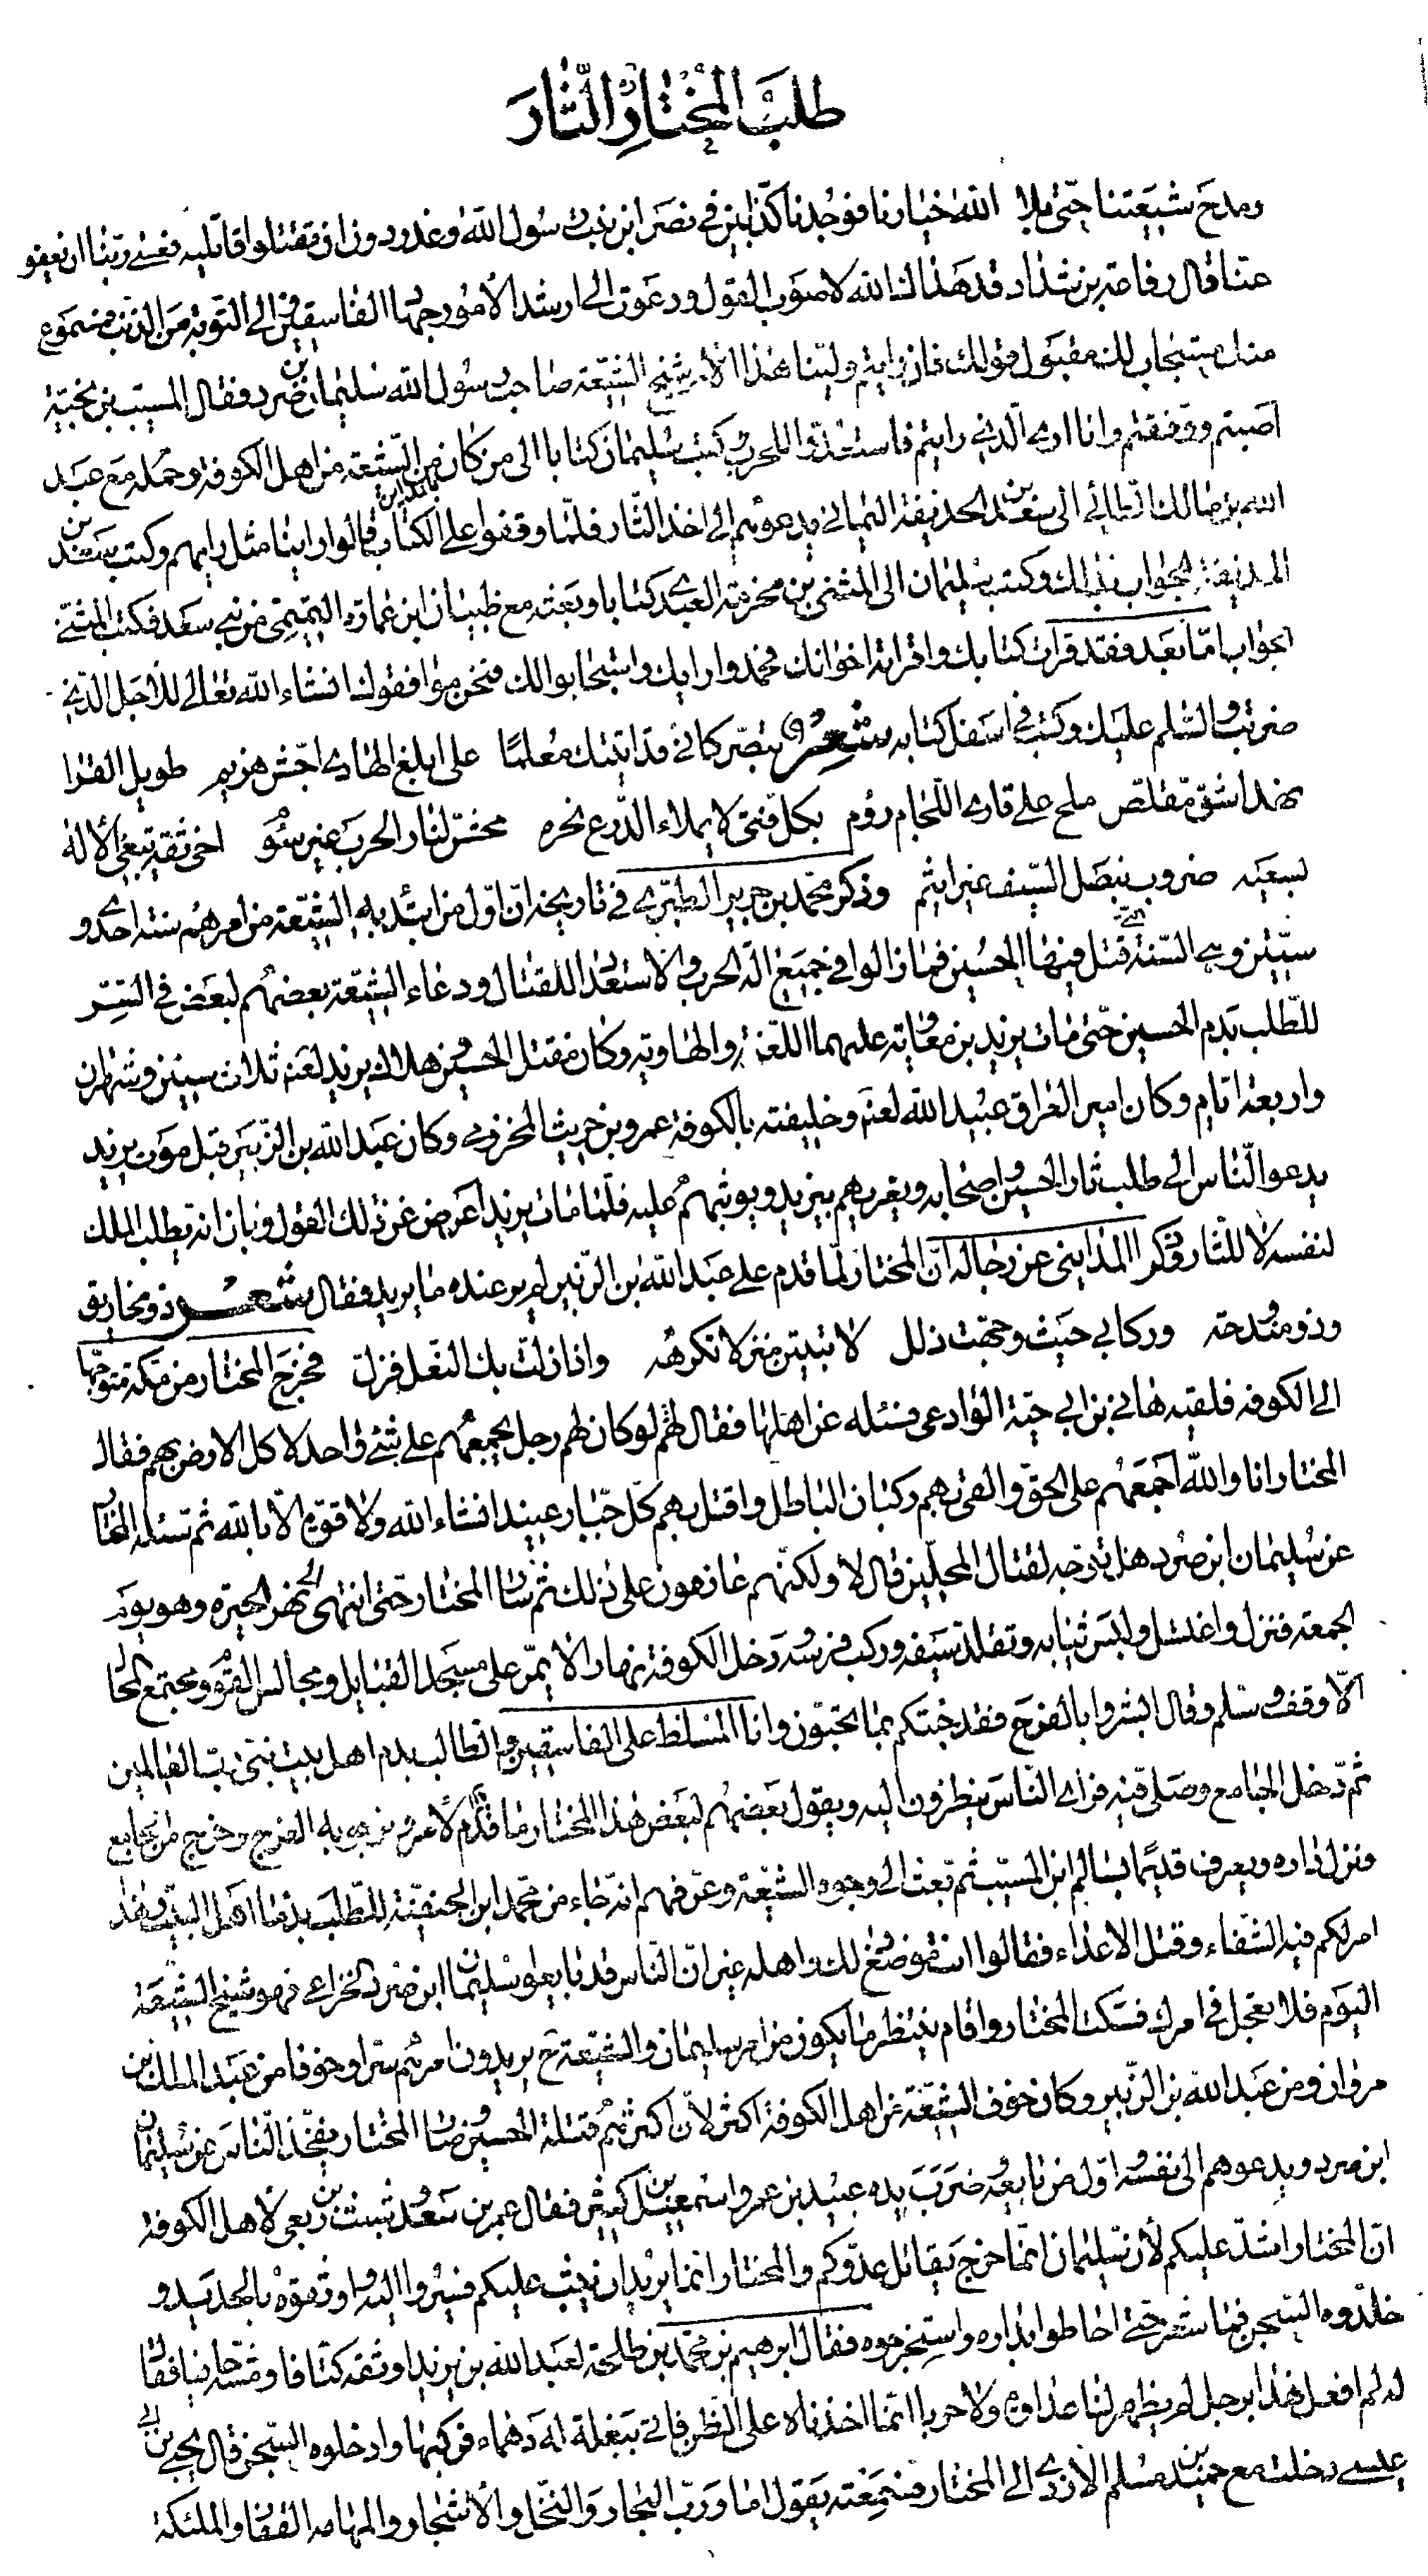 طلب المختار الثار
ومدح شيعتنا حتى بلا الله خيارنا فوجدنا كذابين في نصر ابن بنت رسول الله وعذر دون ان تقتلوا قاتليه فعسى ربنا ان يعفو
عنا قال رفاعة بن شداد قد هداك الله لاصوب القول ودعوت الى ارشد الامور جهاد الفاسقين والى التوبة من الذنب فمسموع
منك مستجاب لك مقبول قولك فان رايتم ولينا هذا الامر شيخ الشيعة صاحب رسول الله سليمان بن صرد فقال المسيب بن نجبة
اصبتم ووفقتم وانا ارى الذي رايتم فاستعدوا للحرب وكتب سليمان كتابا الى من كان من الشيعة من اهل الكوفة وحمله مع عبد
الله بن مالك الطائي الى سعد بن الحذيفة اليماني يدعوهم الى اخذ الثار فلما وقفوا على الكتاب قالوا راينا مثل رايهم وكتب سعد بن
الحذيفة الجواب بذلك وكتب سليمان الى المثنى بن مخرمة العبدي كتابا وبعثه مع ظبيان ابن عمارة التميمي من بني سعد فكتب المثنى
الجواب اما بعد فقد قرات كتابك واقراته اخوانك فحمدوا رايك واستجابوا لك فنحن موافقوك انشاء الله تعالى للاجل الذي
ضربت والسلم عليك وكتب في اسفل كتابه شعر تبصر كاني قد اتيتك معلما على ابلغ الهادي اجش هزيم طويل القرا
نهد اشق مقلص ملح على قاري اللجام رؤم بكل فتى لا يملاء الدرع نحره محش لنار الحرب غير سئوم اخى ثقة يبغي الاله
بسعيه ضروب بنصل السيف غير اثيم وذكر محمد بن جرير الطبري في تاريخه ان اول من ابتد به الشيعة من امرهم سنة احدى و
ستين وهي السنة التي قتل فيها الحسين فما زالوا في جميع الة الحرب والاستعداد للقتال ودعاء الشيعة بعضهم لبعض في السر
للطلب بدم الحسين حتى مات يزيد بن معاوية عليهما اللعنة والهاوية وكان مقتل الحسين وهلاك يزيد لعنه ثلاث سنين وشهران
واربعة ايام وكان امير العراق عبيد الله لعنه وخليفته بالكوفة عمرو بن حريث المخزومي وكان عبد الله بن الزبير قبل موت يزيد
يدعو الناس الى طلب ثار الحسين واصحابه ويغريهم بيزيد ويوثبهم عليه فلما مات يزيد اعرض عن ذلك القول وبان انه يطلب الملك
لنفسه لا للثار وذكر المدايني عن رجاله ان المختار لما قدم على عبد الله بن الزبير لم ير عنده ما يريد فقال شعر ذو مخاريق
وذو مندوحة وركابي حيث وجهت ذلل لا تبيتن منزلا تكرهه واذا زلت بك النعل فزل فخرج المختار من مكة متوجها
الى الكوفه فلقيه هاني بن ابي حية الوادعي فسئله عن اهلها فقال لهم لو كان لهم رجل يجمعهم على شئ واحد لاكل الارض بهم فقال
المختار انا والله اجمعهم على الحق والقى بهم ركبان الباطل واقتل بهم كل جبار عنيد انشاء الله ولا قوة الا بالله ثم سئله المختار
عن سليمان ابن صرد هل توجه لقتال المحلين قال لا ولكنهم عازمون على ذلك ثم سار المختار حتى انتهى الى نهر الحيرة وهو يوم
الجمعة فنزل واغتسل ولبس ثيابه وتقلد سيفه وركب فرسه ودخل الكوفة نهارا لا يمر على مسجد القبايل ومجالس القوم ومجتمع المحال
الا وقف وسلم وقال ابشروا بالفرج فقد جئتكم بما تحبون وانا المسلط على الفاسقين والطالب بدم اهل بيت نبي رب العالمين
ثم دخل الجامع وصلى فيه فراى الناس ينظرون اليه ويقول بعضهم لبعض هذا المختار ما قدم الا لامر نرجو به الفرج وخرج من الجامع
ونزل داره ويعرف قديما بسالم ابن المسيب ثم بعث الى وجوه الشيعة وعرفهم انه جاء من محمد ابن الحنفية للطلب بدماء اهل البيت وهذا
امر لكم فيه الشفاء وقتل الاعداء فقالوا انت موضع لك واهله غير ان الناس قد بايعوا سليمان ابن صرد الخزاعي فهو شيخ الشيعة
اليوم فلا تعجل في امرك فسكت المختار واقام ينتظر ما يكون من امر سليمان والشيعة ح يريدون امرهم سرا وخوفا من عبد الملك بن
مروان ومن عبد الله بن الزبير وكان خوف الشيعة من اهل الكوفة اكثر لان اكثرهم قتلة الحسين وصار المختار يفخذ الناس عن سليمان
ابن صرد ويدعوهم الى نفسه واول من بايعه وضرب يده عبيد بن عمر واسمعيل بن كثير فقال عمر بن سعد وشبث بن ربعي لاهل الكوفة
ان المختار اشد عليكم لان سليمان انما خرج يقاتل عدوكم والمختار انما يريد ان يثب عليكم فسيروا اليه واوثقوه بالحديد و
خلدوه السجن فما شعر حتى احاطوا بداره واستخرجوه فقال ابرهيم بن محمد بن طلحة لعبد الله بن يزيد اوثقه كتافا ومشه حافيا فقال
له لم افعل هذا برجل لم يظهر لنا عداوة ولا حربا انما اخذناه على الظن فاتى ببغلة له دهماء فركبها وادخلوه السجن قال يحيى بن ابي
عيسى دخلت مع حميد بن مسلم الازدي الى المختار فسمعته يقول اما ورب البحار والنخل والاشجار والمهامه القفار والملئكة